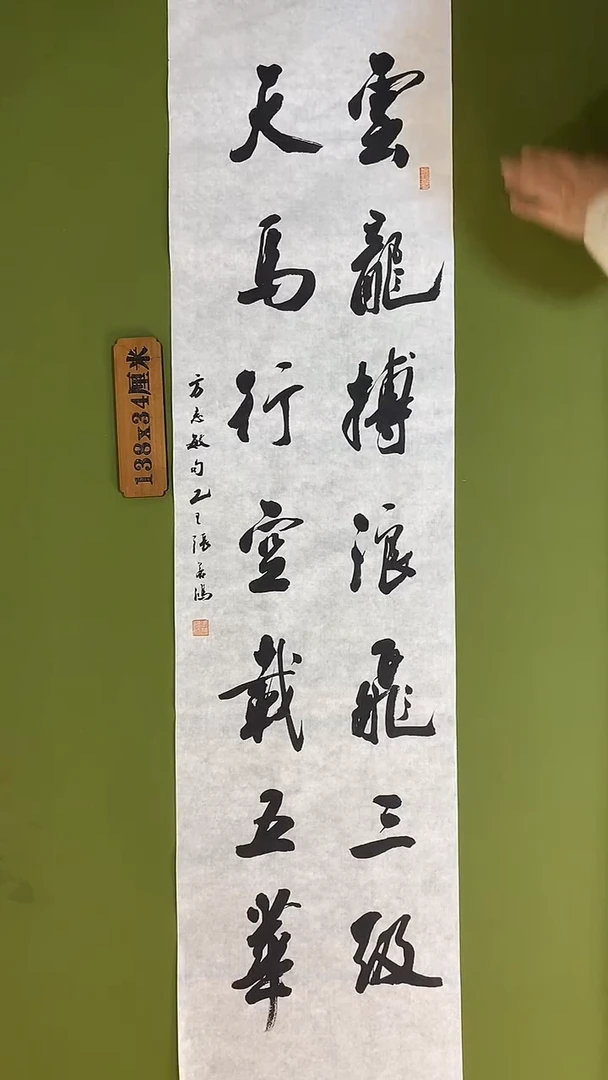 雲龍搏浪飛三級
天馬行空載五華
方志敏句乙巳張
138x34厘米